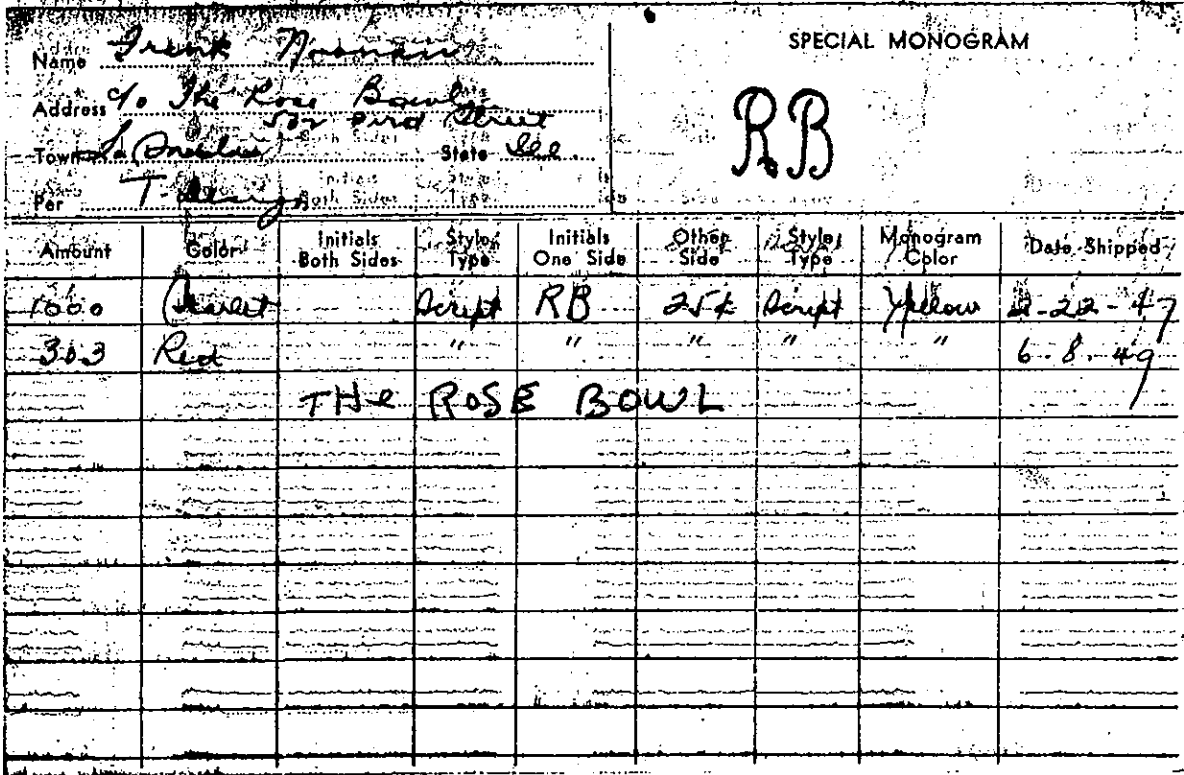 SPECIAL MONOGRAM
Name Frank Noonan
Address c/o The Rose Bowl
Street
Town State Ill.
Per T-
RB
Amount Color Initials Both Sides Style Type Initials One Side Other Side Style Type Monogram Color Date Shipped
1000 Scarlet Script RB 25¢ Script Yellow 2-22-47
303 Red " " " " " 6-8-49
THe ROSE BOWL